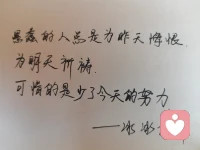 愚蠢的人总是为昨天悔恨
为明天祈祷.
可惜的是少了今天的努力
——冰冰